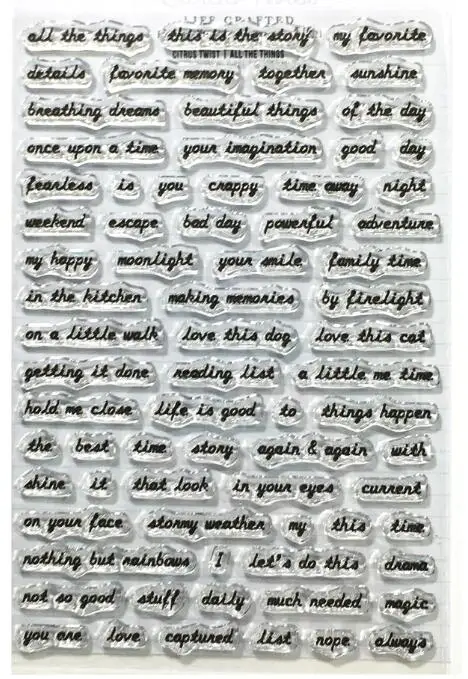 all the things this is the story my favorite
CITRUS TWIST | ALL THE THINGS
details favorite memory together sunshine
breathing dreams beautiful things of the day
once upon a time your imagination good day
fearless is you crappy time away night
weekend escape bad day powerful adventure
my happy moonlight your smile family time
in the kitchen making memories by firelight
on a little walk love this dog love this cat
getting it done reading list a little me time
hold me close life is good to things happen
the best time story again & again with
shine it that look in your eyes current
on your face stormy weather my this time
nothing but rainbows I let's do this drama
not so good stuff daily much needed magic
you are love captured list nope always